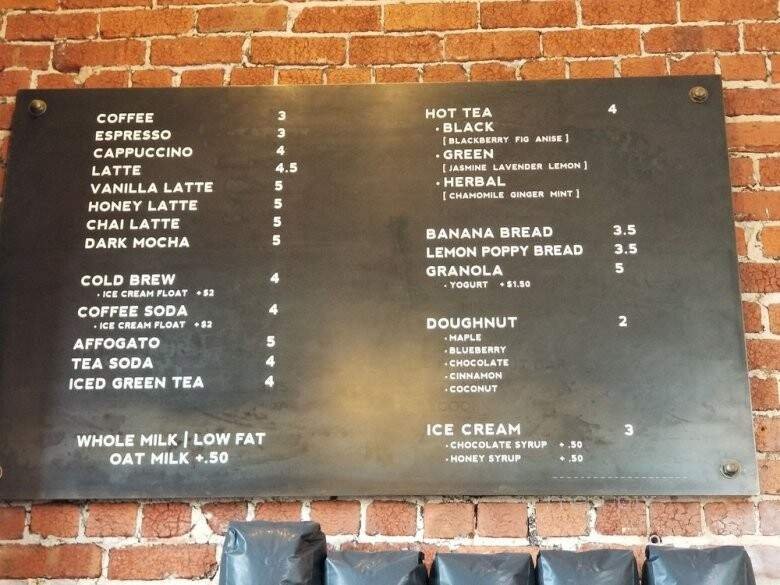 COFFEE 3
ESPRESSO 3
CAPPUCCINO 4
LATTE 4.5
VANILLA LATTE 5
HONEY LATTE 5
CHAI LATTE 5
DARK MOCHA 5
COLD BREW 4
• ICE CREAM FLOAT +$2
COFFEE SODA 4
• ICE CREAM FLOAT +$2
AFFOGATO 5
TEA SODA 4
ICED GREEN TEA 4
WHOLE MILK | LOW FAT
OAT MILK +.50
HOT TEA 4
• BLACK
[ BLACKBERRY FIG ANISE ]
• GREEN
[ JASMINE LAVENDER LEMON ]
• HERBAL
[ CHAMOMILE GINGER MINT ]
BANANA BREAD 3.5
LEMON POPPY BREAD 3.5
GRANOLA 5
• YOGURT +$1.50
DOUGHNUT 2
• MAPLE
• BLUEBERRY
• CHOCOLATE
• CINNAMON
• COCONUT
ICE CREAM 3
• CHOCOLATE SYRUP + .50
• HONEY SYRUP + .50